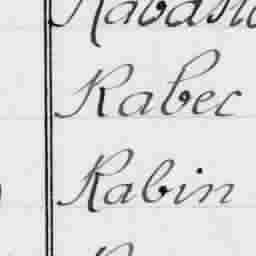 Rabec
Rabin